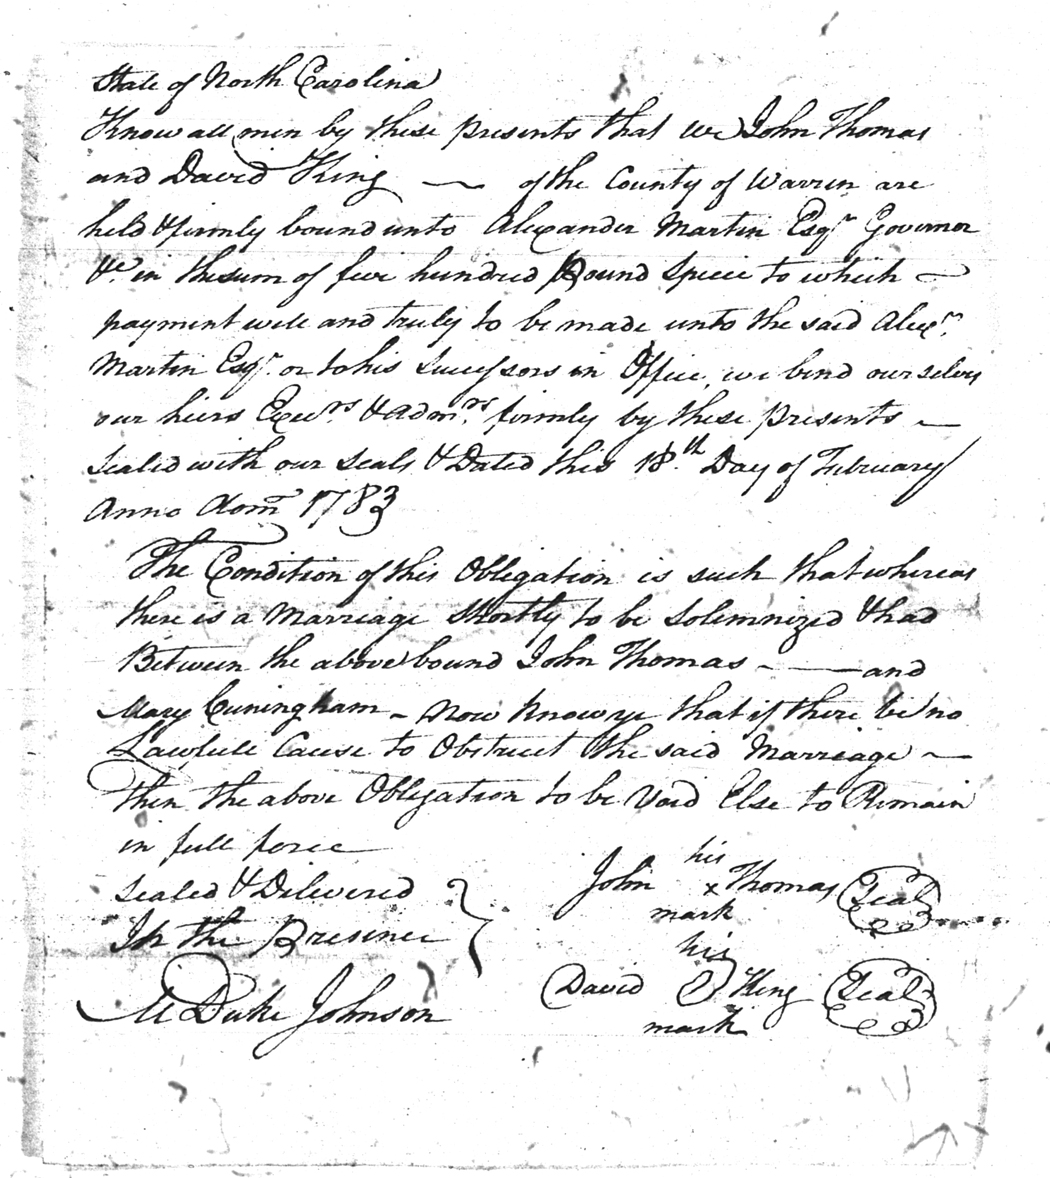 State of North Carolina
Know all men by these presents that we John Thomas
and David King — of the County of Warren are
held & firmly bound unto Alexander Martin Esqr Governor
&c. in the sum of five hundred Pound Specie to which —
payment well and truly to be made unto the said Alexr.
Martin Esqr. or to his Successors in Office, we bind ourselves
our heirs Exeurs. & Admrs. firmly by these presents —
Sealed with our seals & Dated this 18th. Day of February
Anno Dom 1783
The Condition of this Obligation is such that whereas
there is a Marriage Shortly to be Solemnized & had
Between the above bound John Thomas - —— and
Mary Cuningham - Now know ye that if there be no
Lawfull Cause to Obstruct the said Marriage —
then the above Obligation to be Void Else to Remain
in full force
Sealed & Delivered
In the Presence
M Duke Johnson
his
John x Thomas Seal
mark
his
David King Seal
mark